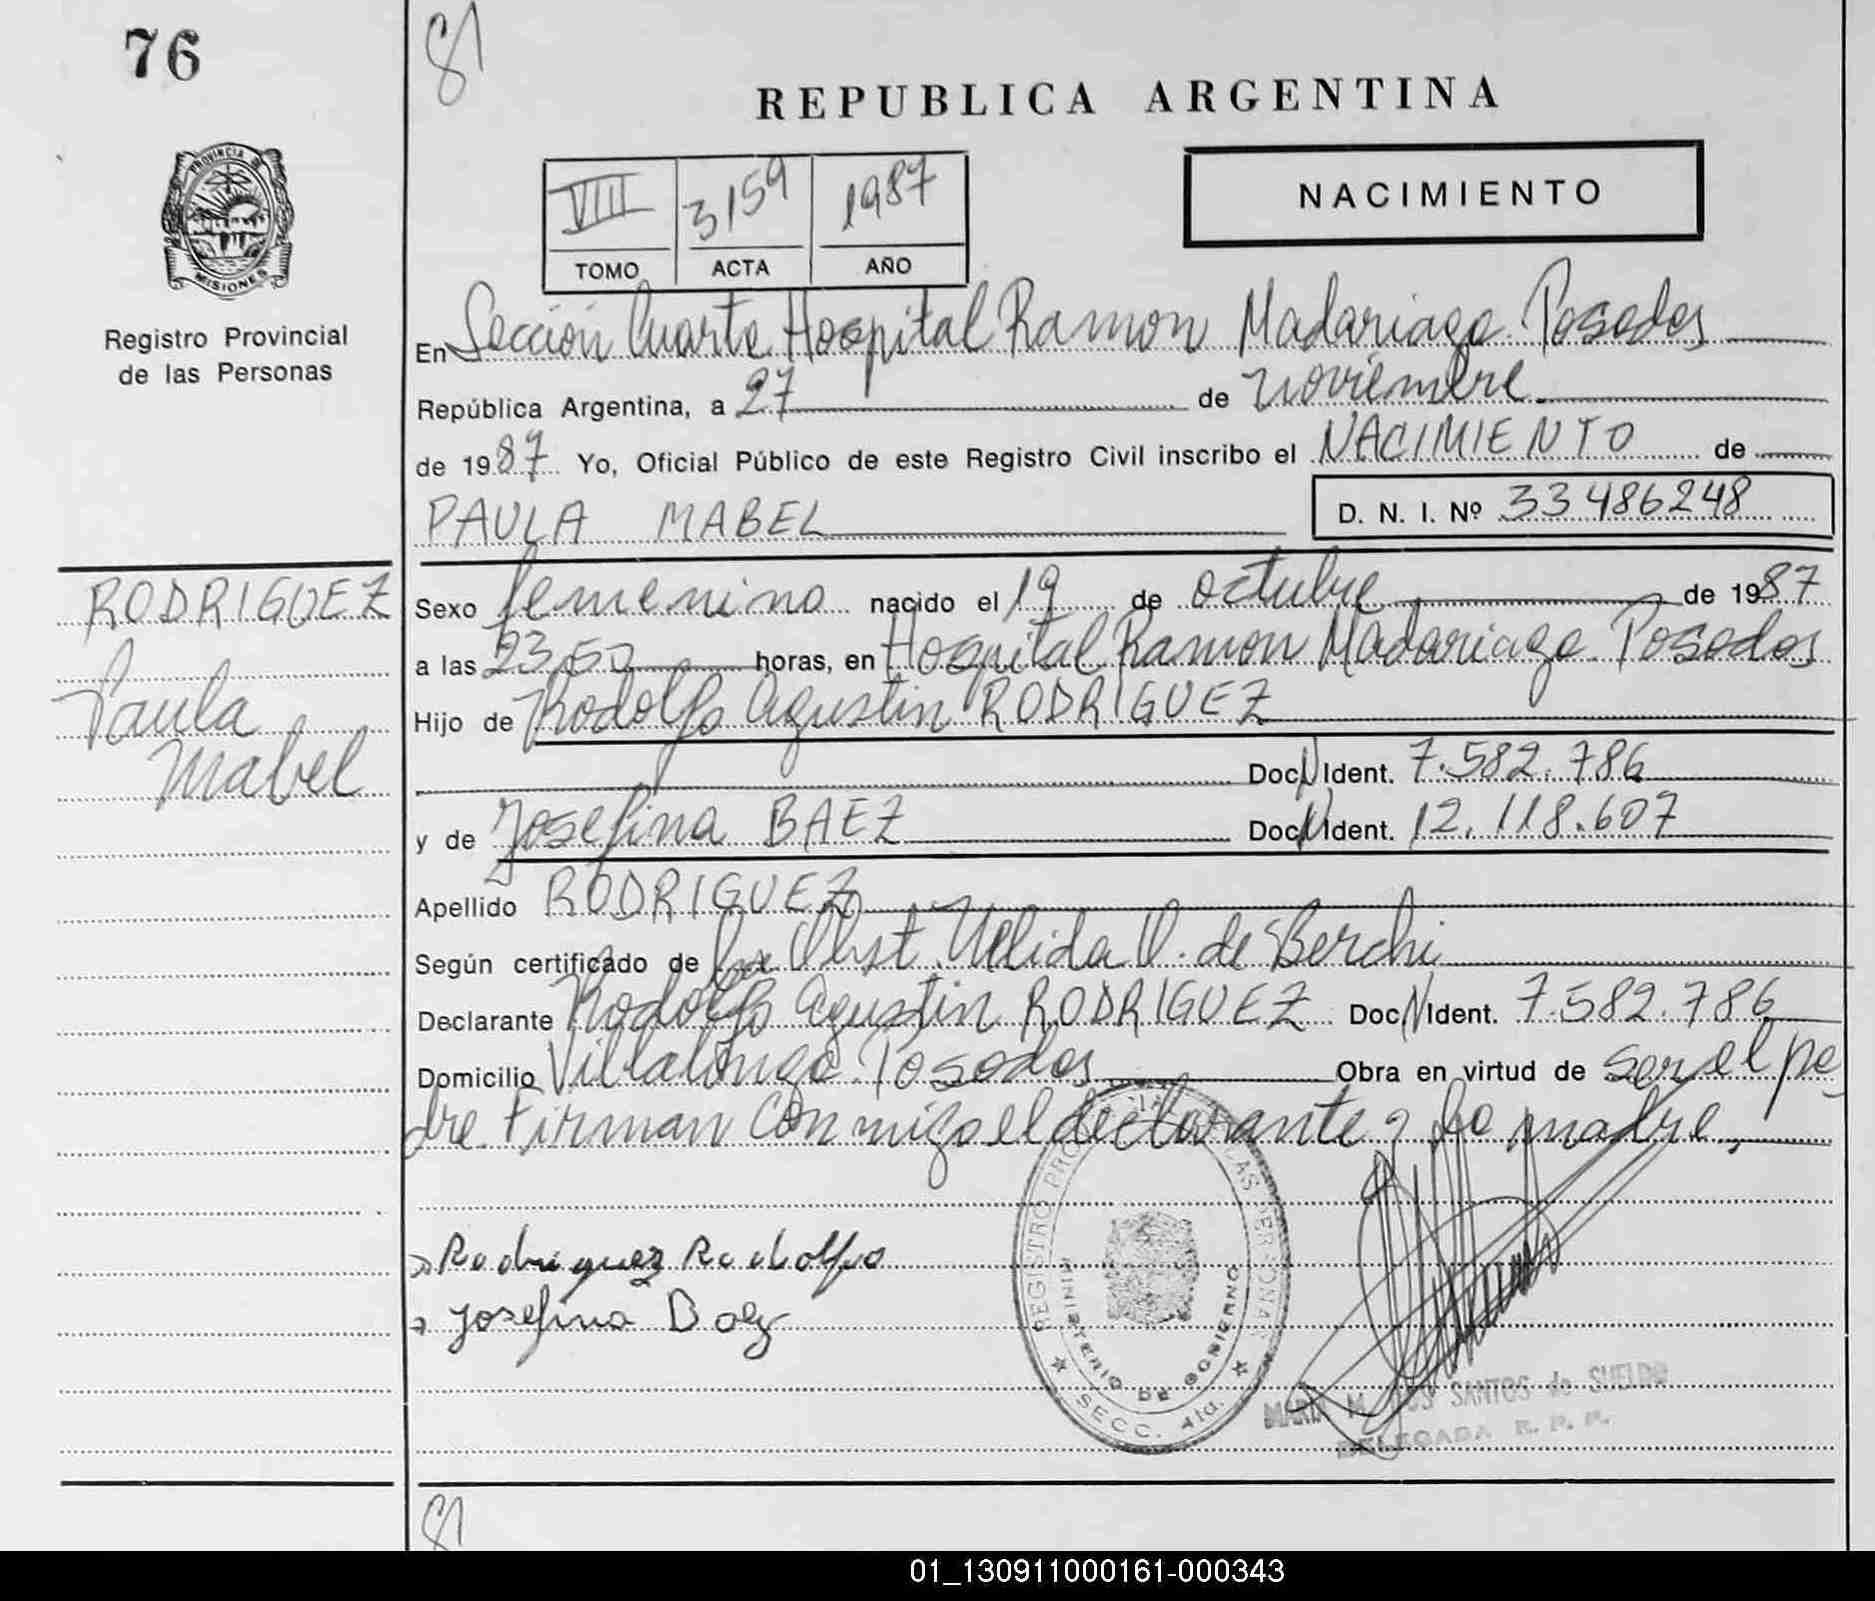 76
81
REPUBLICA ARGENTINA
PROVINCIA DE
MISIONES
Registro Provincial
de las Personas
VIII 3159 1987
TOMO ACTA AÑO
NACIMIENTO
En Sección Cuarta Hospital Ramon Madariaga. Posadas
República Argentina, a 27 de noviembre
de 1987 Yo, Oficial Público de este Registro Civil inscribo el NACIMIENTO de
PAULA MABEL D. N. I. Nº 33486248
RODRIGUEZ
Paula
Mabel
Sexo femenino nacido el 19 de octubre de 1987
a las 23,50 horas, en Hospital Ramon Madariaga. Posadas
Hijo de Rodolfo Agustin RODRIGUEZ
Doc. N Ident. 7.582.786
y de Josefina BAEZ Doc. N Ident. 12.118.607
Apellido RODRIGUEZ
Según certificado de la Obst. de Berchi
Declarante Rodolfo Agustin RODRIGUEZ Doc. N Ident. 7.582.786
Domicilio Villalonga. Posadas Obra en virtud de ser el pa
dre. Firman conmigo el declarante y la madre.
Rodriguez Rodolfo
Josefina Baez
REGISTRO PROVINCIAL DE LAS PERSONAS
MINISTERIO DE GOBIERNO
SECC. 4ta.
MARIA M. DOS SANTOS de SUELDO
DELEGADA R. P. P.
81
01_130911000161-000343